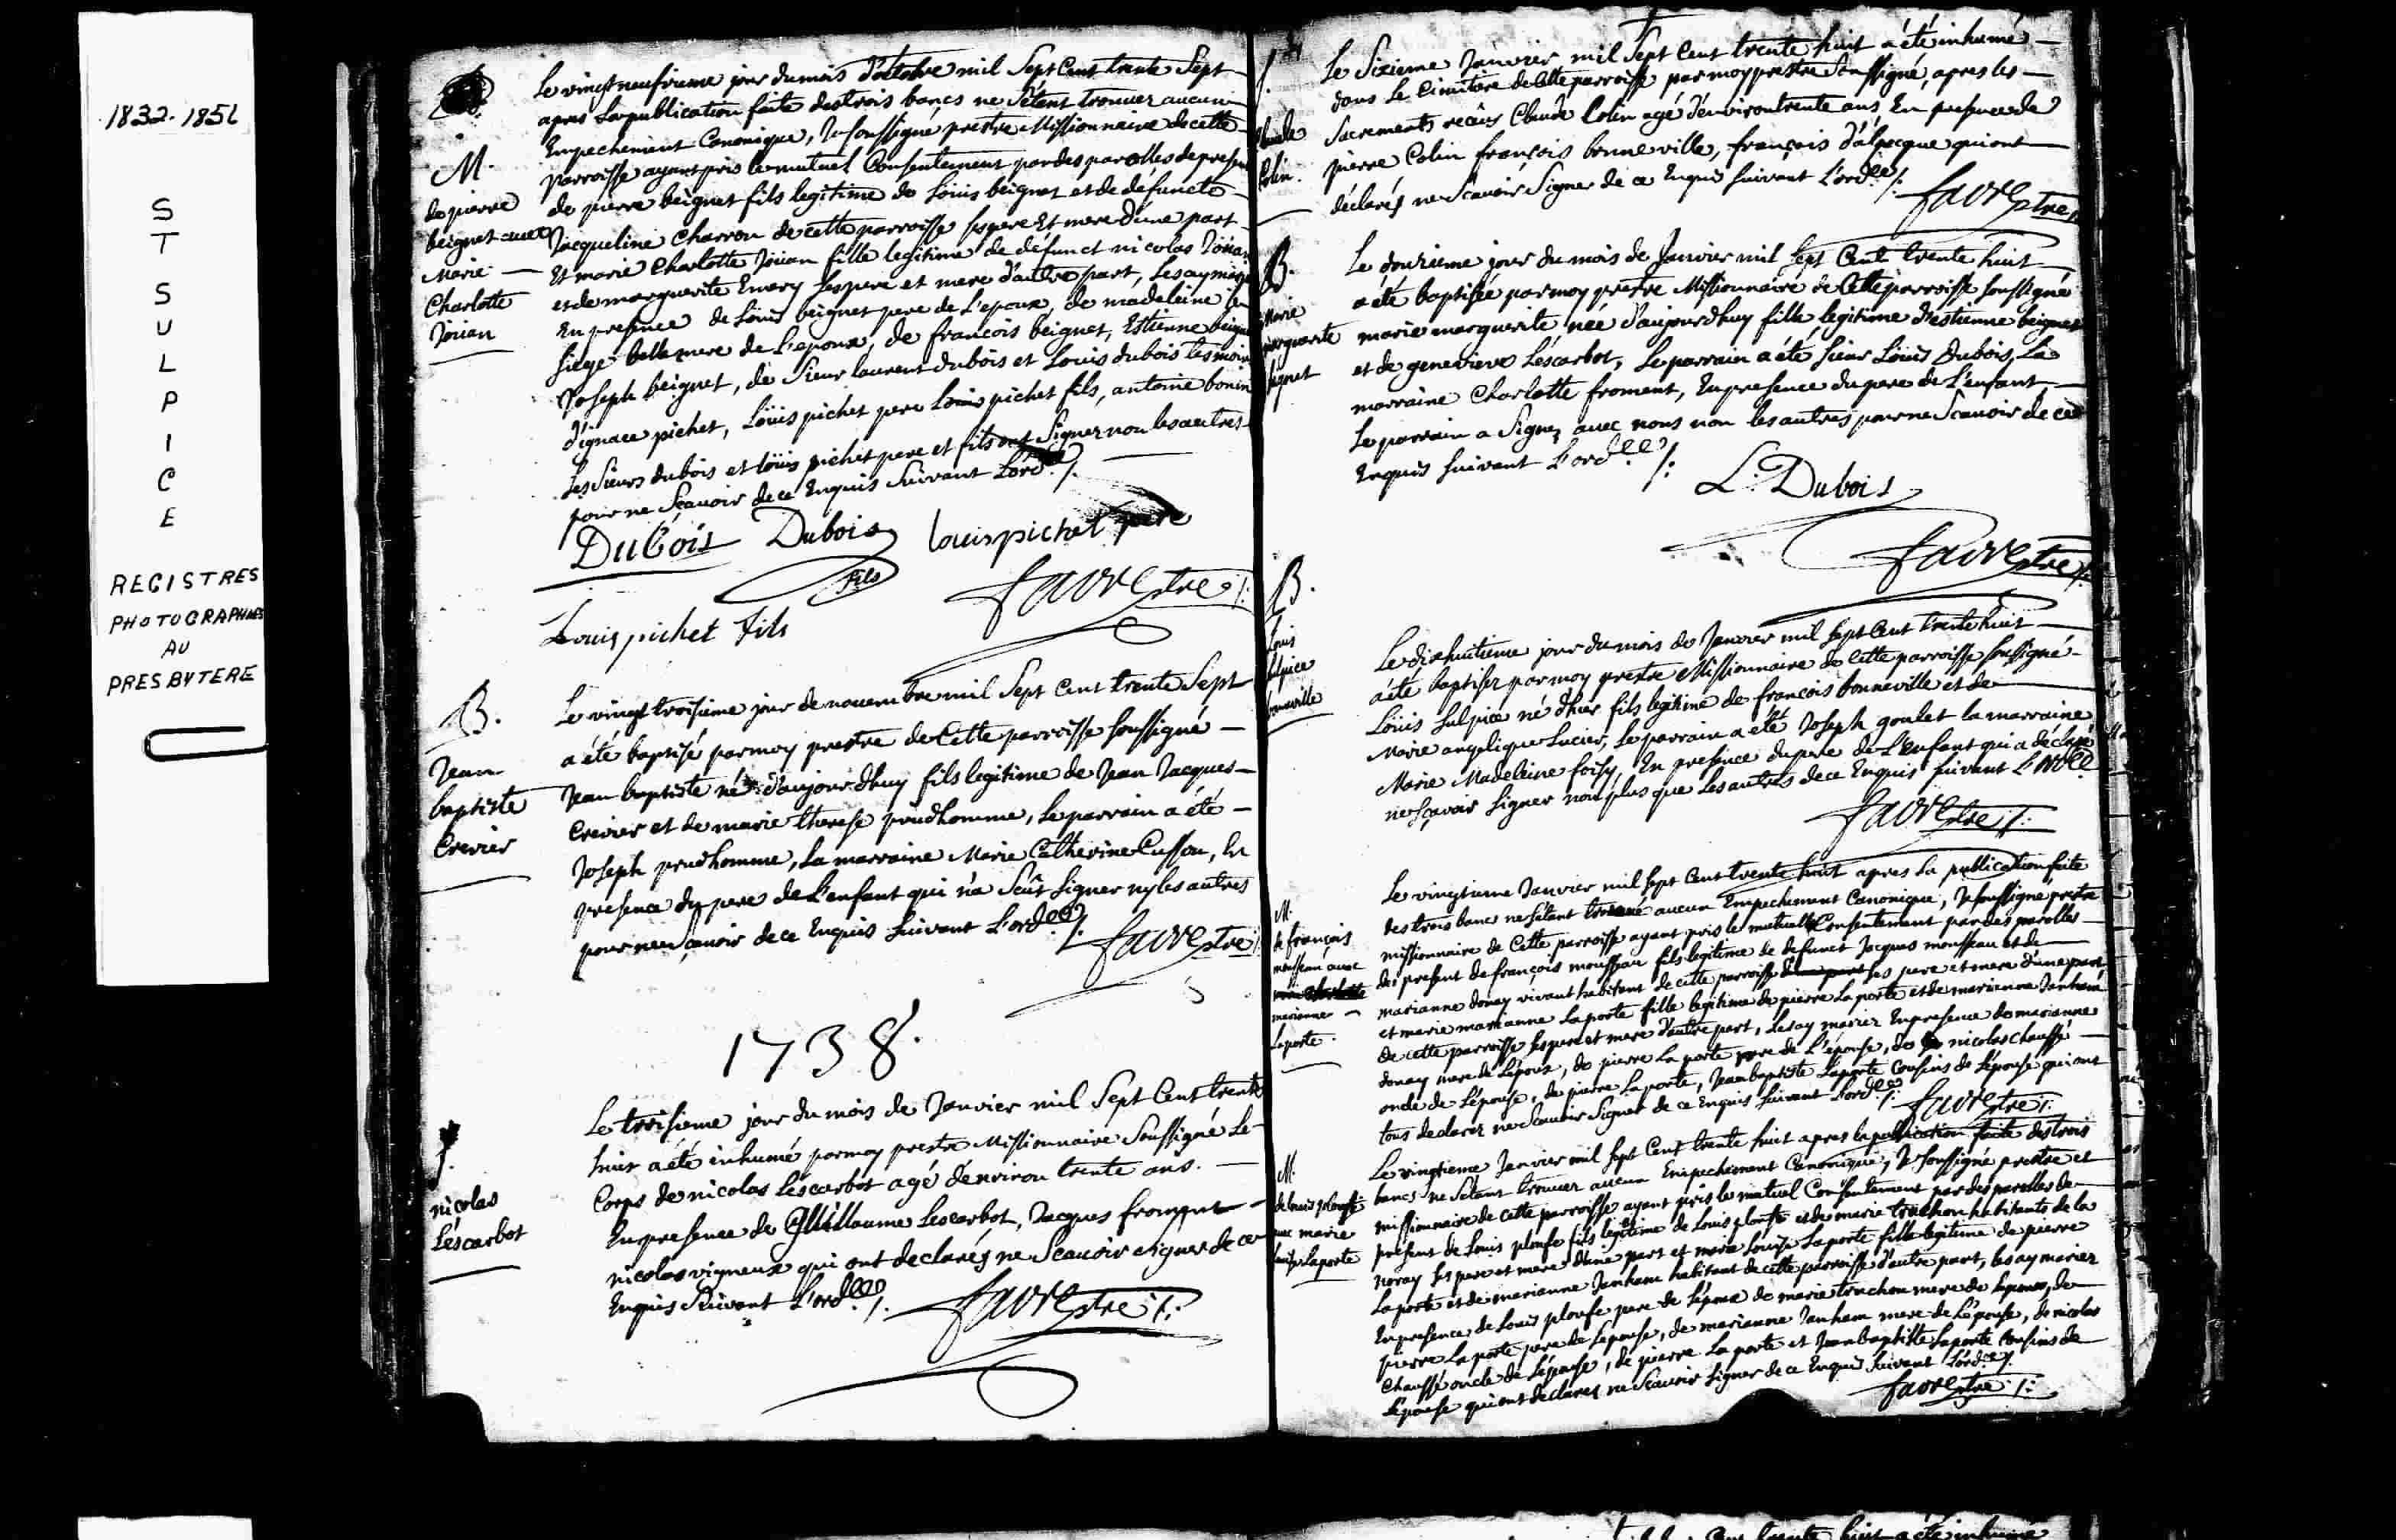 1832-1851
ST SULPICE
REGISTRES
PHOTOGRAPHIES
AU
PRESBYTERE
M.
de pierre
beignet avec
Marie
Charlotte
Joüan
Le vingt neufvieme jour du mois d'octobre mil Sept Cent trente Sept
apres la publication faite des trois bancs ne s'étent trouver aucun
Empechement Canonique, Je soussigné prestre Missionnaire de cette
parroisse ayant pris le mutuel Consentement par des parolles de present
de pierre beignet fils legitime de Loüis beignet et de défuncte
Jacqueline Charron de cette parroisse ses pere Et mere d'une part
Et marie Charlotte Joüan fille legitime de défunct nicolas Joüan
et de marguerite Emery ses pere et mere d'autre part, Les ay mariez
En presence de Loüis beignet pere de L'epoux, de madeleine
siege belle mere de L'epoux, de francois beignet, Estienne beignet
Joseph beignet, de Sieur laurent dubois et Louis dubois tesmoins
d'ignace pichet, Loüis pichet pere Loüis pichet fils, antoine bonin
Les Sieurs dubois et loüis pichet pere et fils ont Signer non les autres
pour ne Scavoir de ce Enquis Suivant L'ord.ce /.
Dubois Dubois fils louis pichet pere
Louis pichet fils favre ptre /:
B.
Jean
baptiste
Crevier
Le vingt troisieme jour de novembre mil Sept Cent trente Sept
a été baptisé par moy prestre de Cette parroisse soussigné
Jean baptiste né d'aujourdhuy fils legitime de Jean Jacques
Crevier et de marie therese prudhomme, Le parrain a été
Joseph prudhomme, La marraine Marie Catherine Cusson, En
presence du pere de L'enfant qui n'a Seût signer ny les autres
pour ne Sçavoir de ce Enquis suivant L'ord.ce /.
favre ptre /:
1738.
S.
nicolas
Léscarbot
Le troisieme jour du mois de Janvier mil Sept Cent trente
huit a été inhumé par moy prestre Missionnaire Soussigné Le
Corps de nicolas Léscarbot agé d'environ trente ans.
En presence de Guillaume Lescarbot, Jacques froment
nicolas vigneux qui ont declarés ne Scavoir signer de ce
Enquis Suivant L'ord.ce /.
favre ptre /:
S.
Claude
Colin.
Le Sixieme Janvier mil Sept Cent trente huit a été inhumé
dans Le Cimitere de Cette parroisse par moy prestre Soussigné, apres les
Sacrements recûs Claude Colin agé d'environ trente ans En presence de
pierre Colin françois bonneville, françois d'alpecque qui ont
déclarés ne Scavoir Signer de ce Enquis suivant L'ord.ce /:
favre ptre /:
B.
Marie
marguerite
beignet
Le douzieme jour du mois de Janvier mil Sept Cent trente huit
a été baptisée par moy prestre Missionnaire de Cette parroisse soussigné
marie marguerite née d'aujourdhuy fille legitime d'estienne beignet
et de genevieve Léscarbot, Le parrain a été sieur Loüis Dubois, La
marraine Charlotte froment, En presence du pere de L'enfant,
Le parrain a Signez avec nous non les autres pour ne Scavoir de ce
Enquis suivant L'ord.ce /:
L. Dubois
favre ptre /:
B.
Loüis
sulpice
bonneville
Le dixhuitieme jour du mois de Janvier mil sept Cent trente huit
a été baptiser par moy prestre Missionnaire de Cette parroisse soussigné
Loüis sulpice né d'hier fils legitime de françois bonneville et de
Marie angelique Lucier, Le parrain a été Joseph goulet la marraine
Marie Madeleine foisy, En presence du pere de L'enfant qui a déclaré
ne Sçavoir signer non plus que Les autres de ce Enquis suivant L'ord.ce
favre ptre /:
M.
de françois
mousseau avec
marianne
Laporte.
Le vingtieme Janvier mil Sept Cent trente huit apres La publication faite
des trois bancs ne s'étant trouvé aucun Empechement Canonique, Je soussigné prestre
missionnaire de Cette parroisse ayant pris le mutuelle Consentement par des parolles
de present de françois mousseau fils legitime de defunct Jacques mousseau et de
marianne donay vivant habitant de cette parroisse ses pere et mere d'une part
et marie marianne Laporte fille legitime de pierre La porte et de marianne Janham
de cette parroisse ses pere et mere d'autre part, Les ay marier En presence de marianne
donay mere de L'epoux, de pierre La porte pere de L'épouse, de nicolas Chaussé
oncle de L'épouse, de pierre La porte, Jean baptiste Laporte Cousins de L'épouse qui ont
tous declarer ne Scavoir Signer de ce Enquis Suivant L'ord.ce /:
favre ptre /:
M.
de Louis plouffe
avec marie
Louise Laporte
Le vingtieme Janvier mil Sept Cent trente huit apres la publication faite des trois
bancs ne s'étant trouver aucun Empechement Canonique, Je soussigné prestre et
missionnaire de cette parroisse ayant pris le mutuel Consentement par des parolles de
present de Louis plouffe fils legitime de Louis plouffe et de marie truchon habitants de la
noray ses pere et mere d'une part et marie Louise Laporte fille legitime de pierre
La porte et de marianne Janham habitant de cette parroisse d'autre part, les ay marier
En presence de Louis plouffe pere de L'epoux de marie truchon mere de L'epoux, de
pierre La porte pere de L'epouse, de marianne Janham mere de L'épouse, de nicolas
Chaussé oncle de L'épouse, de pierre La porte et Jean baptiste Laporte Cousins de
L'épouse qui ont declarez ne Scavoir signer de ce Enquis Suivant L'ord.ce /.
favre ptre /: